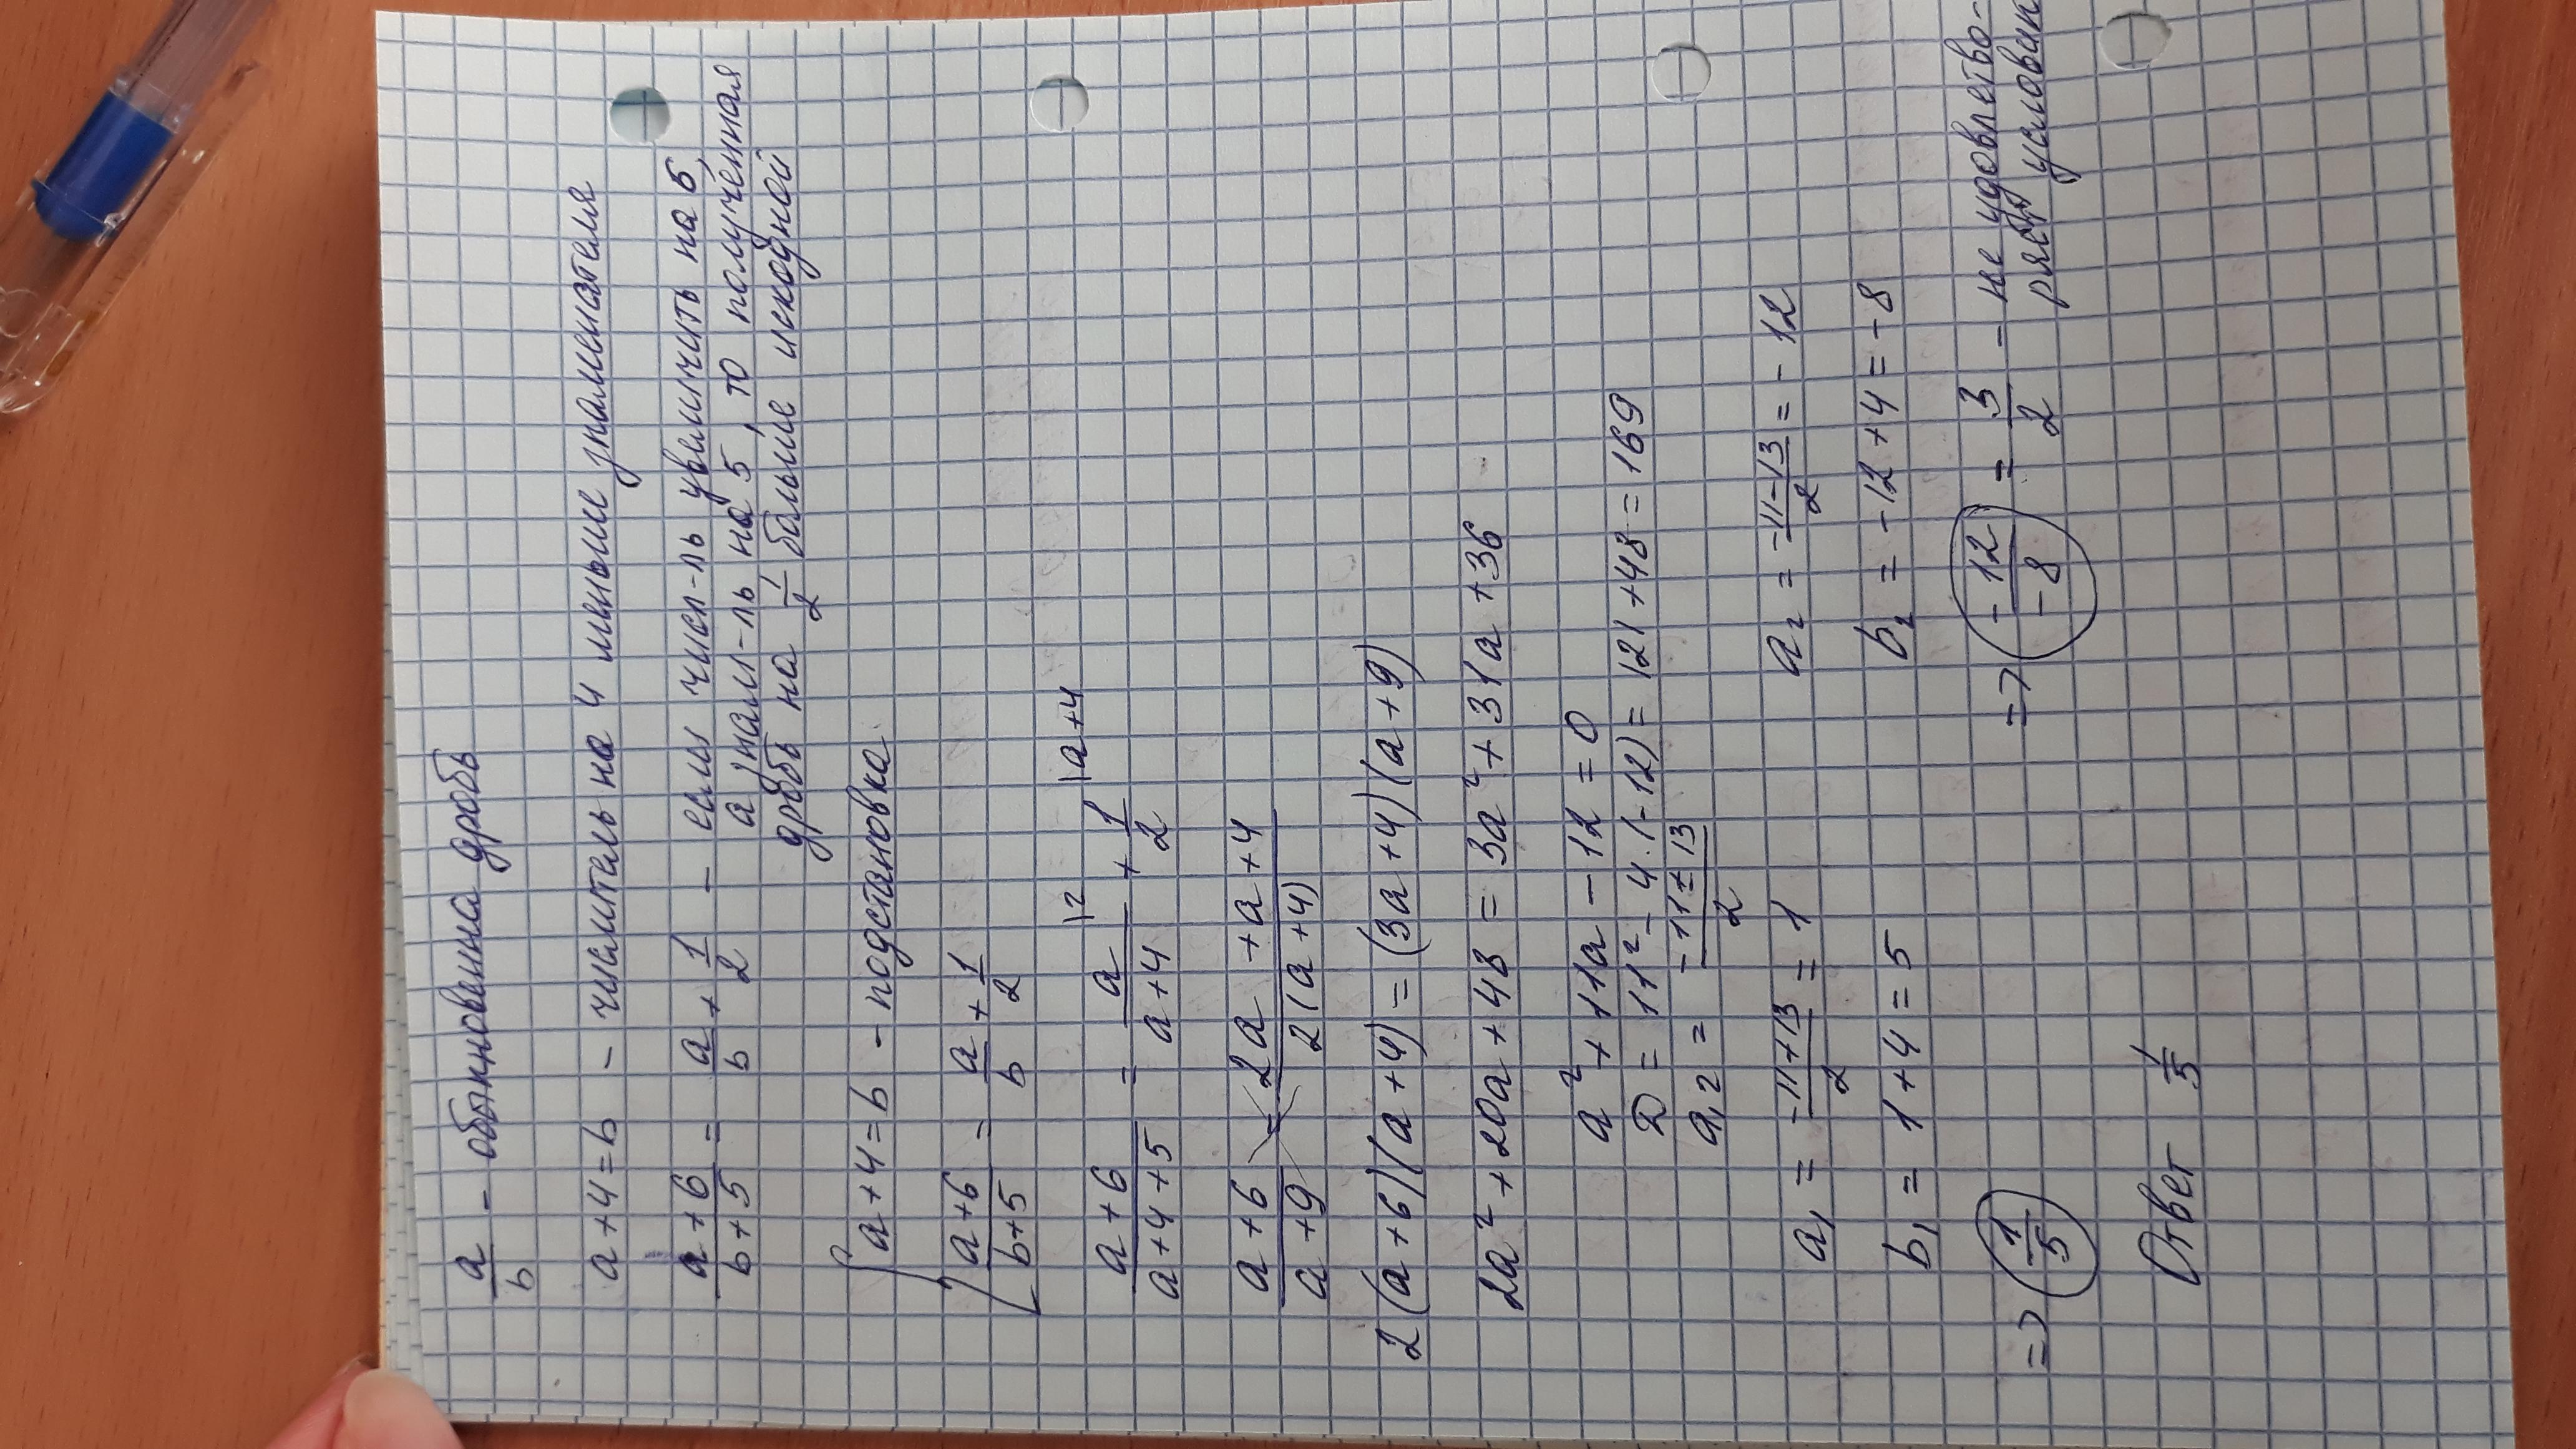 a/b - обыкновенна дробь
a + 4 = b - числитель на 4 меньше знаменателя
(a + 6)/(b + 5) = a/b + 1/2 - если числ-ль увеличить на 6,
а знам-ль на 5, то полученная
дробь на 1/2 больше исходной
{ a + 4 = b - подстановка
(a + 6)/(b + 5) = a/b + 1/2
(a + 6)/(a + 4 + 5) = a/(a + 4) |2 + 1/2 |a+4
(a + 6)/(a + 9) = (2a + a + 4)/(2(a + 4))
2(a + 6)(a + 4) = (3a + 4)(a + 9)
2a² + 20a + 48 = 3a² + 31a + 36
a² + 11a - 12 = 0
D = 11² - 4·(-12) = 121 + 48 = 169
a₁,₂ = (-11 ± 13)/2
a₁ = (-11 + 13)/2 = 1 a₂ = (-11 - 13)/2 = -12
b₁ = 1 + 4 = 5 b₂ = -12 + 4 = -8
=> 1/5 => -12/-8 = 3/2 - не удовлетво-
ряет условию
Ответ 1/5